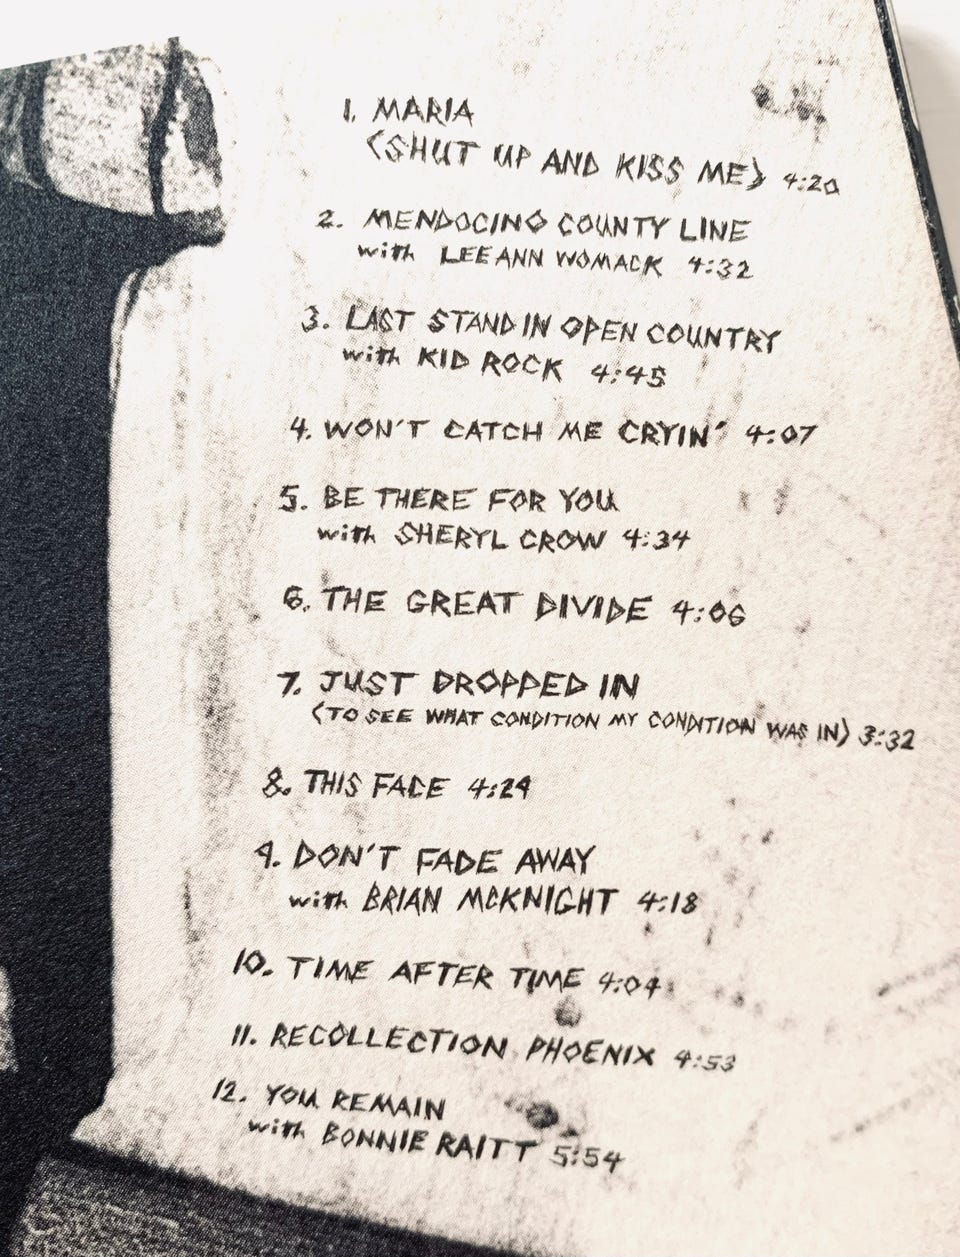 1. MARIA
(SHUT UP AND KISS ME) 4:20
2. MENDOCINO COUNTY LINE
with LEE ANN WOMACK 4:32
3. LAST STAND IN OPEN COUNTRY
with KID ROCK 4:45
4. WON'T CATCH ME CRYIN' 4:07
5. BE THERE FOR YOU
with SHERYL CROW 4:34
6. THE GREAT DIVIDE 4:06
7. JUST DROPPED IN
(TO SEE WHAT CONDITION MY CONDITION WAS IN) 3:32
8. THIS FACE 4:29
9. DON'T FADE AWAY
with BRIAN MCKNIGHT 4:18
10. TIME AFTER TIME 4:04
11. RECOLLECTION PHOENIX 4:53
12. YOU REMAIN
with BONNIE RAITT 5:54